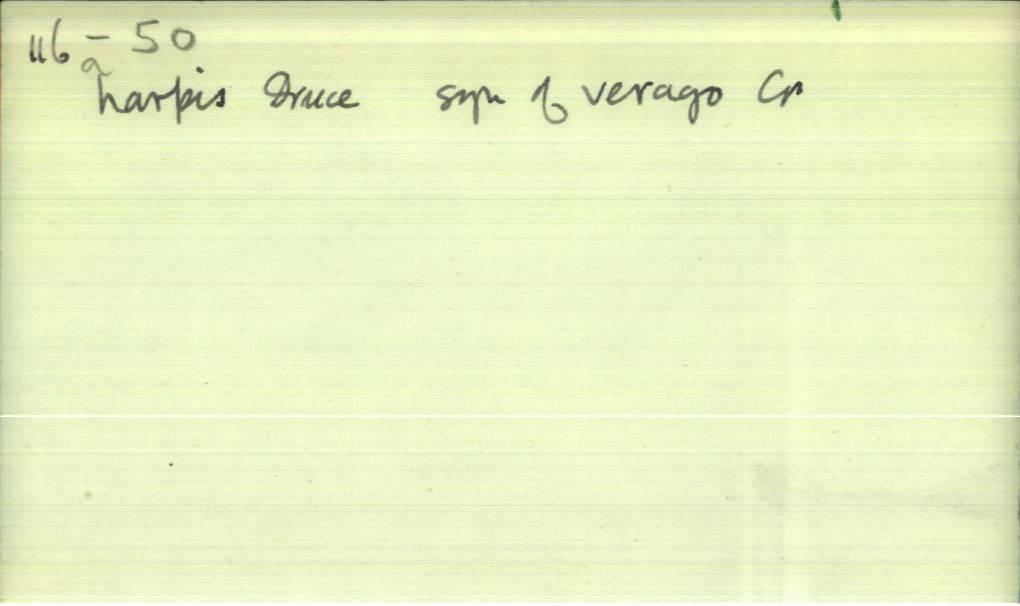 116 - 50
a
harpis Druce syn of verago Cr